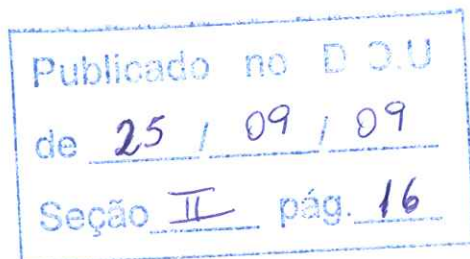 Publicado no D.O.U
de 25 / 09 / 09
Seção II pág. 16